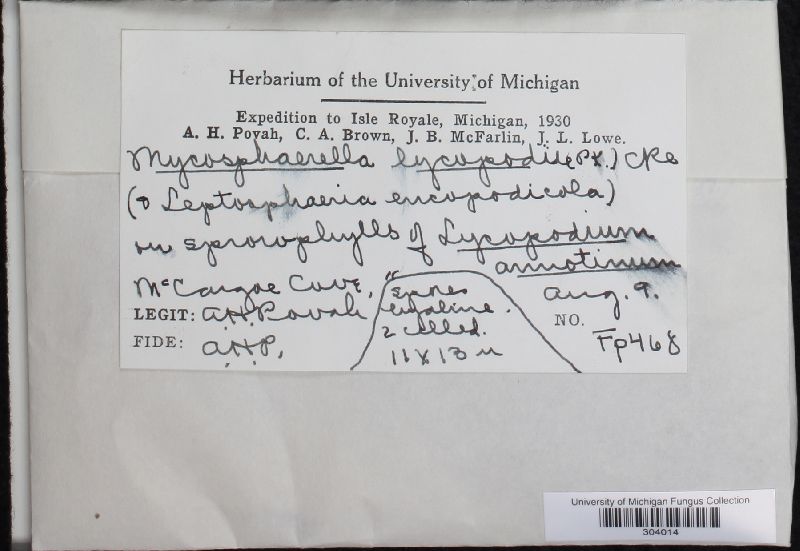 Herbarium of the University of Michigan
Expedition to Isle Royale, Michigan, 1930
A. H. Povah, C. A. Brown, J. B. McFarlin, J. L. Lowe.
Mycosphaerella lycopodii (Pk.) Cke
( Leptosphaeria encopodicola)
on sporophylls of Lycopodium
annotinum
McCargoe Cove, Aug. 9.
spores
hyaline.
2 celled.
LEGIT: A.H. Povah
NO. Fp468
FIDE: A.H.P.
University of Michigan Fungus Collection
304014